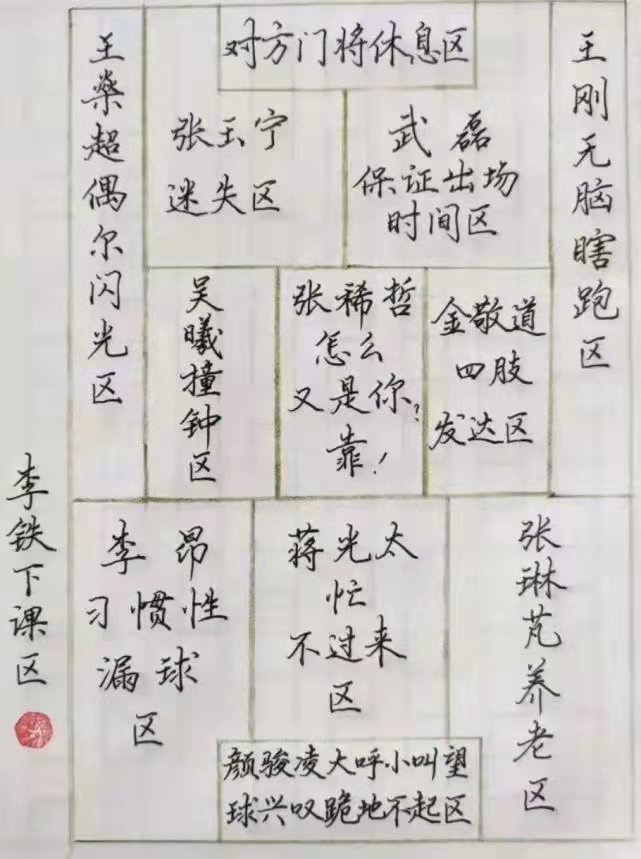 对方门将休息区
王燊超偶尔闪光区
张玉宁
迷失区
武磊
保证出场
时间区
王刚无脑瞎跑区
吴曦撞钟区
张稀哲
怎么
又是你?
靠!
金敬道
四肢
发达区
李铁下课区
李昂
习惯性
漏球
区
蒋光太
忙
不过来
区
张琳芃养老区
颜骏凌大呼小叫望
球兴叹跪地不起区